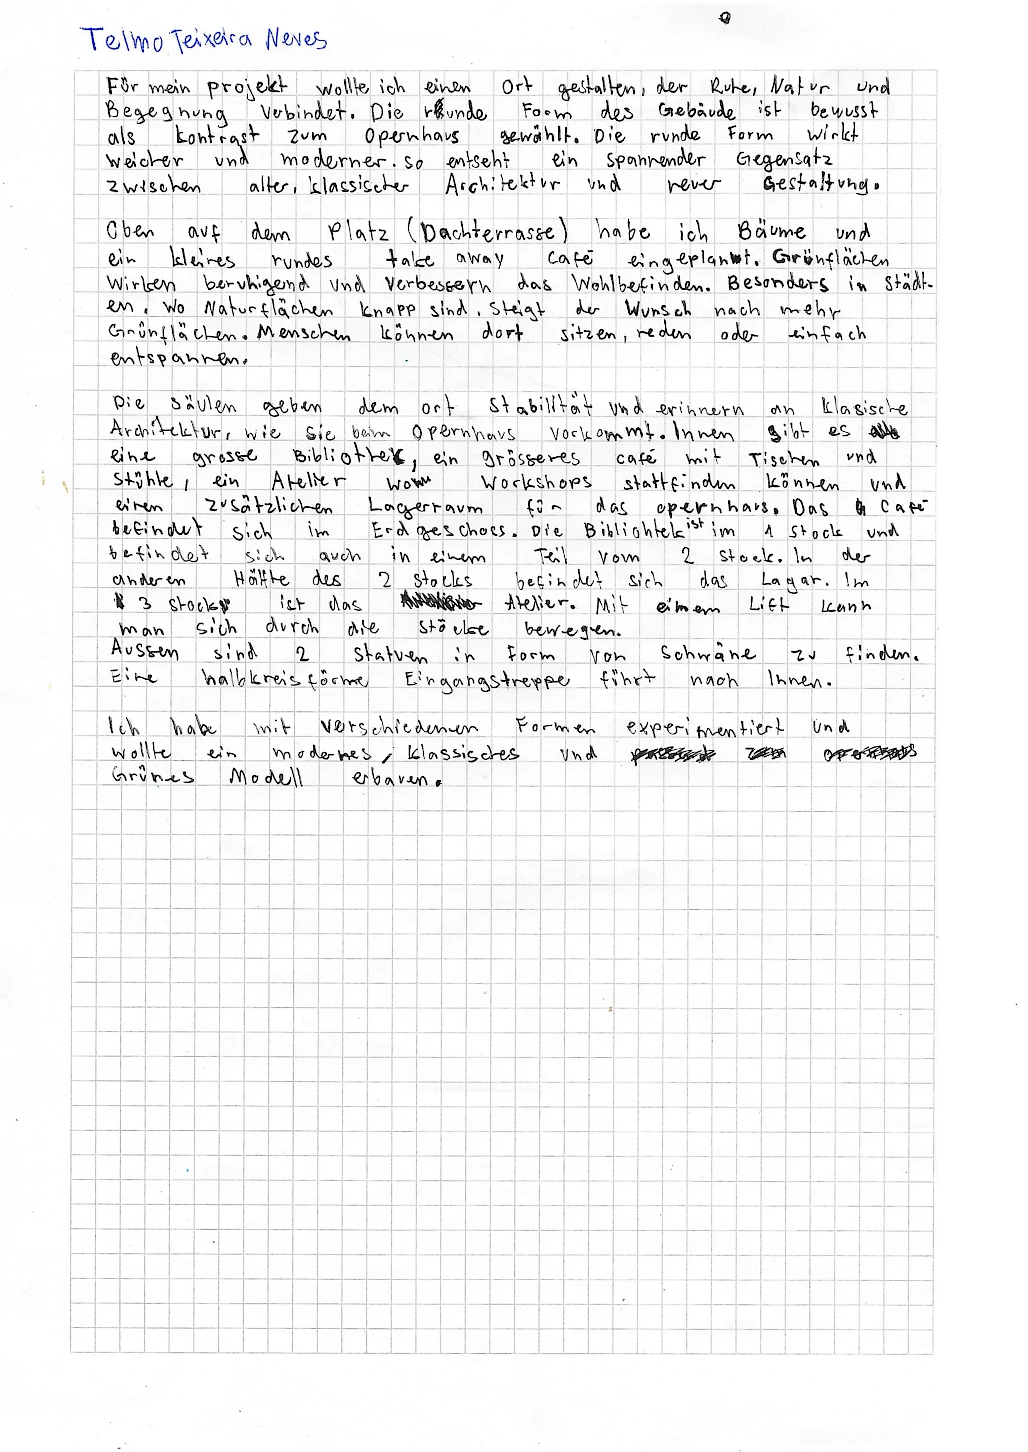 Telmo Teixeira Neves
Für mein projekt wollte ich einen Ort gestalten, der Ruhe, Natur und
Begegnung verbindet. Die runde Form des Gebäude ist bewusst
als kontrast zum Opernhaus gewählt. Die runde Form wirkt
weicher und moderner. so entseht ein spannender Gegensatz
zwischen alter, klassischer Architektur und neuer Gestaltung.
Oben auf dem Platz (Dachterrasse) habe ich Bäume und
ein kleines rundes take away café eingeplant. Grünflächen
Wirken beruhigend und verbessern das Wohlbefinden. Besonders in Städt-
en, wo Naturflächen knapp sind, steigt der Wunsch nach mehr
Grünflächen. Menschen können dort sitzen, reden oder einfach
entspannen.
Die Säulen geben dem ort Stabilität und erinnern an klasische
Architektur, wie sie beim Opernhaus vorkommt. Innen gibt es
eine grosse Bibliothek, ein grösseres café mit Tischen und
Stühle, ein Atelier wo Workshops stattfinden können und
einen zusätzlichen Lagerraum für das opernhaus. Das Café
befindet sich im Erdgeschoss. Die Bibliohtek ist im 1 Stock und
befindet sich auch in einem Teil vom 2 Stock. In der
anderen Hälfte des 2 Stocks befindet sich das Lagar. Im
3 Stock ist das Atelier. Mit einem Lift kann
man sich durch die Stöcke bewegen.
Aussen sind 2 Statuen in Form von Schwäne zu finden.
Eine halbkreisförme Eingangstreppe führt nach Innen.
Ich habe mit verschiedenen Formen experimentiert und
wollte ein modernes, klassisches und
Grünes Modell erbauen.